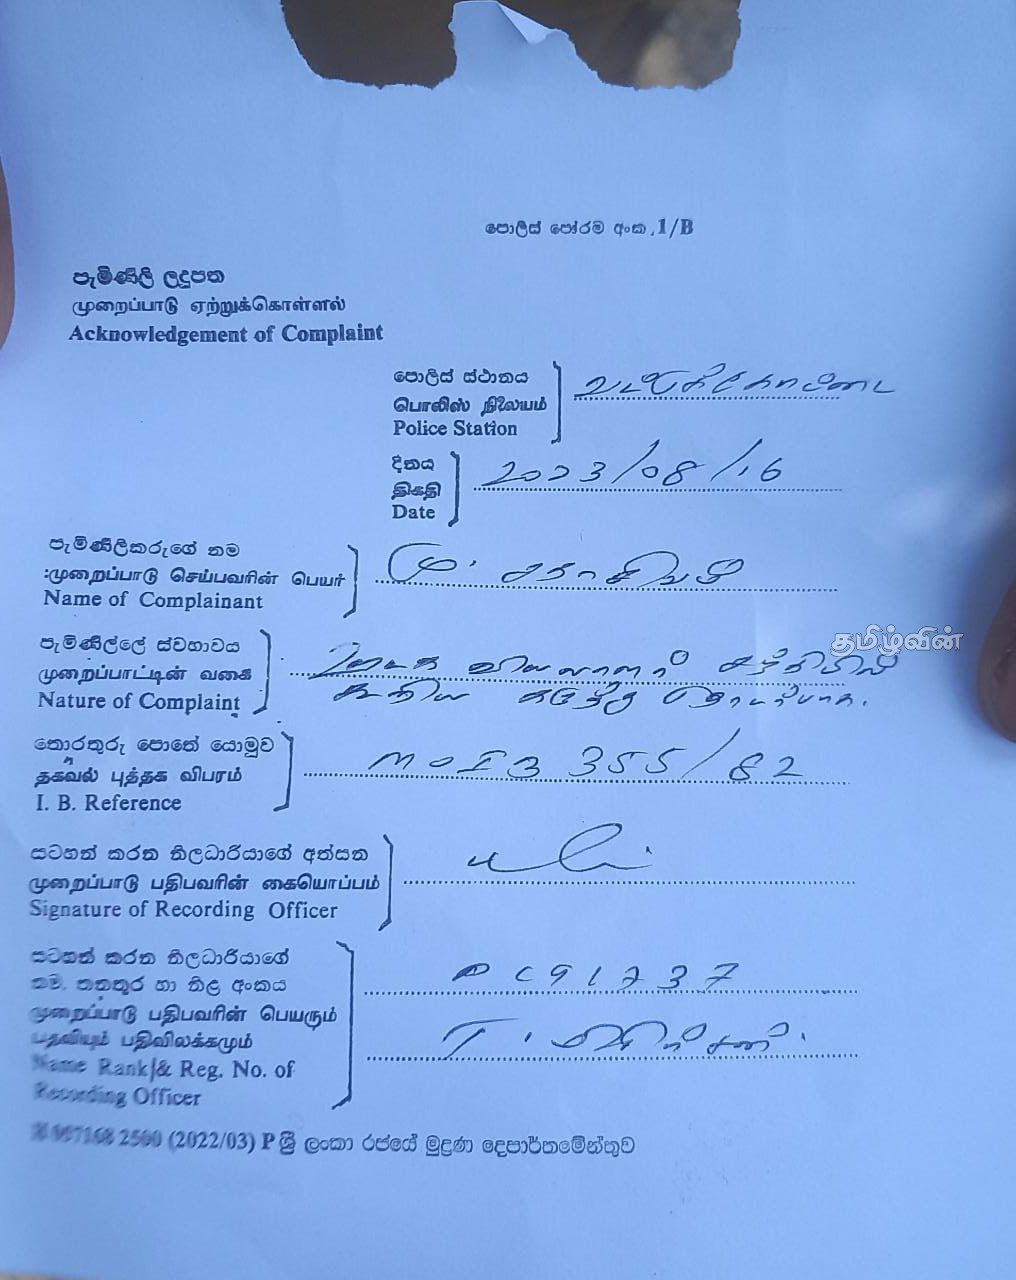 පොලිස් පෝරම අංක.1/B
පැමිණිලි ලදුපත
முறைப்பாடு ஏற்றுக்கொள்ளல்
Acknowledgement of Complaint
පොලිස් ස්ථානය
பொலிஸ் நிலையம்
Police Station
வட்டுக்கோட்டை
දිනය
திகதி
Date
2023/08/16
පැමිණිලිකරුගේ නම
முறைப்பாடு செய்பவரின் பெயர்
Name of Complainant
தமிழ்வின்
පැමිණිල්ලේ ස්වභාවය
முறைப்பாட்டின் வகை
Nature of Complaint
கூறிய கருத்து தொடர்பாக.
තොරතුරු පොතේ යොමුව
தகவல் புத்தக விபரம்
I. B. Reference
MOIB 355/82
සටහන් කරන නිලධාරියාගේ අත්සන
முறைப்பாடு பதிபவரின் கையொப்பம்
Signature of Recording Officer
සටහන් කරන නිලධාරියාගේ
නම, තනතුර හා නිළ අංකය
முறைப்பாடு பதிபவரின் பெயரும்
பதவியும் பதிவிலக்கமும்
Name Rank & Reg. No. of
Recording Officer
PC 91737
2500 (2022/03) P ශ්‍රී ලංකා රජයේ මුද්‍රණ දෙපාර්තමේන්තුව